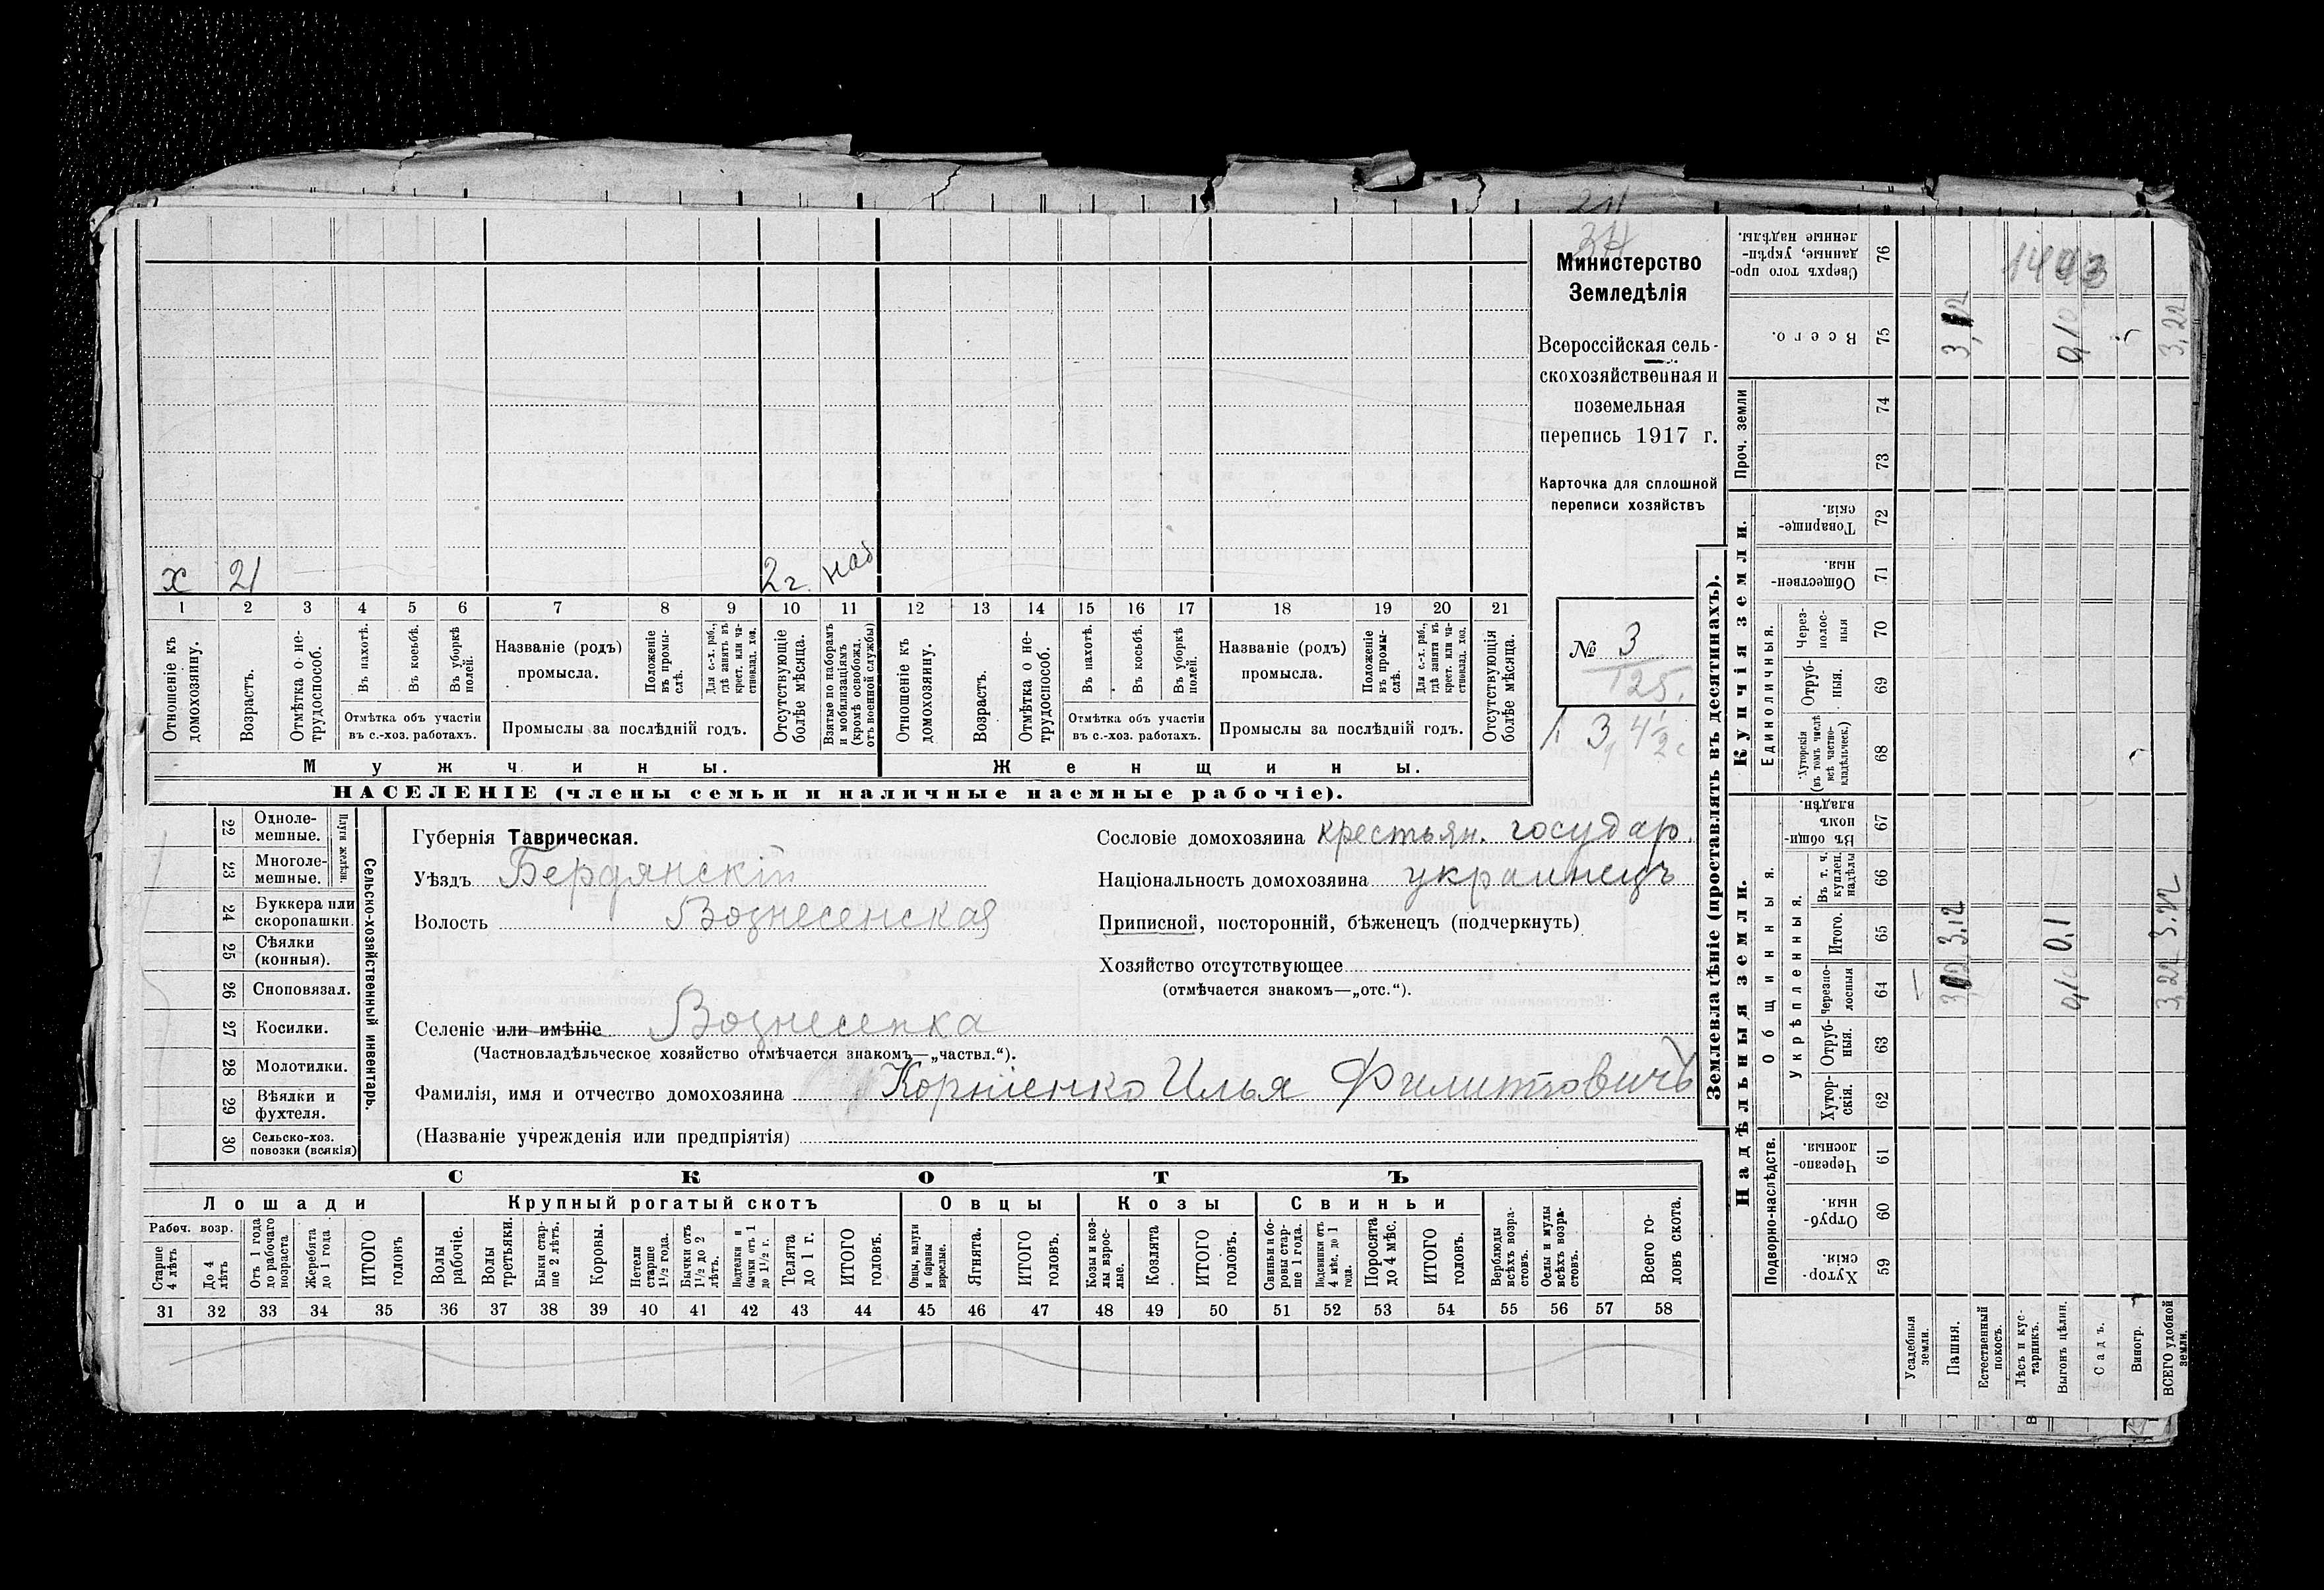 Министерство
Земледѣлія
Всероссійская сель-
скохозяйственная и
поземельная
перепись 1917 г.
Карточка для сплошной
переписи хозяйствъ
№ 3
125.
3, 4 1/2 с
х 21 2 г. наб
1 2 3 4 5 6 7 8 9 10 11 12 13 14 15 16 17 18 19 20 21
Отношеніе къ домохозяину.
Возрастъ.
Отмѣтка о не-трудоспособ.
Въ пахотѣ.
Въ косьбѣ.
Въ уборкѣ полей.
Отмѣтка объ участіи
въ с.-хоз. работахъ.
Названіе (родъ)
промысла.
Положеніе въ промы-слѣ.
Для с.-х. раб., гдѣ занятъ въ крест. или ча-стновлад. хоз.
Промыслы за послѣдній годъ.
Отсутствующіе болѣе мѣсяца.
Взятые по наборамъ и мобилизаціямъ (кромѣ освобожд. отъ военной службы)
Отношеніе къ домохозяину.
Возрастъ.
Отмѣтка о не-трудоспособ.
Въ пахотѣ.
Въ косьбѣ.
Въ уборкѣ полей.
Отмѣтка объ участіи
въ с.-хоз. работахъ.
Названіе (родъ)
промысла.
Положеніе въ промы-слѣ.
Для с.-х. раб., гдѣ занята въ крест. или ча-стновлад. хоз.
Промыслы за послѣдній годъ.
Отсутствующія болѣе мѣсяца.
Мужчины. Женщины.
НАСЕЛЕНІЕ (члены семьи и наличные наемные рабочіе).
Сельско-хозяйственный инвентарь.
Плуги желѣзн.
22 Одноле-мешные.
23 Многоле-мешные.
24 Буккера или скоропашки.
25 Сѣялки (конныя).
26 Сноповязал.
27 Косилки.
28 Молотилки.
29 Вѣялки и фухтеля.
30 Сельско-хоз. повозки (всякія)
Губернія Таврическая.
Уѣздъ Бердянскій
Волость Вознесенская
Селеніе или имѣніе Вознесенка
(Частновладѣльческое хозяйство отмѣчается знакомъ—„частвл.“).
Фамилія, имя и отчество домохозяина Корніенко Илья Филиповичъ
(Названіе учрежденія или предпріятія)
Сословіе домохозяина крестьян. государ.
Національность домохозяина украинецъ
Приписной, посторонній, бѣженецъ (подчеркнуть)
Хозяйство отсутствующее
(отмѣчается знакомъ—„отс.“).
СКОТЪ
Лошади Крупный рогатый скотъ Овцы Козы Свиньи
Рабоч. возр.
Старше 4 лѣтъ
До 4 лѣтъ
Отъ 1 года до рабочаго возраста
Жеребята до 1 года
ИТОГО головъ
Волы рабочіе.
Волы третьяки.
Быки стар-ше 2 лѣтъ.
Коровы.
Нетели старше 1 1/2 года.
Бычки отъ 1 1/2 до 2 лѣтъ.
Подтелки и бычки отъ 1 до 1 1/2 г.
Телята до 1 г.
ИТОГО головъ.
Овцы, валухи и бараны взрослые.
Ягнята.
ИТОГО головъ.
Козы и коз-лы взрос-лые.
Козлята
ИТОГО головъ.
Свиньи и бо-ровы стар-ше 1 года.
Подсвинки отъ 4 мѣс. до 1 года.
Поросята до 4 мѣс.
ИТОГО головъ.
Верблюды всѣхъ возра-стовъ.
Ослы и мулы всѣхъ возра-стовъ.
Всего го-ловъ скота.
31 32 33 34 35 36 37 38 39 40 41 42 43 44 45 46 47 48 49 50 51 52 53 54 55 56 57 58
Землевладѣніе (проставлять въ десятинахъ).
Надѣльныя земли. Купчія земли.
Подворно-наслѣдств. Общинныя. Единоличныя. Проч. земли
Укрѣпленныя.
Хутор-скія. 59
Отруб-ныя. 60
Черезпо-лосныя. 61
Хутор-скія. 62
Отруб-ныя. 63
Черезпо-лосныя 64
Итого. 65
Въ т. ч. куплен. надѣлы 66
Въ общин-номъ владѣн. 67
Хуторскія (въ томъ числѣ всѣ частно-владѣльческ.) 68
Отруб-ныя. 69
Через-полос-ныя 70
Обществен-ныя. 71
Товарище-скія. 72
73
74
Всего. 75
Сверхъ того про-данные, укрѣп-ленные надѣлы. 76
Усадебныя земли.
Пашня. 3,12
Естественный покосъ.
Лѣсъ и кус-тарникъ.
Выгонъ цѣлин. 0,1 0,10
Садъ.
Виногр.
ВСЕГО удобной земли. 3,22 3,22 3,22